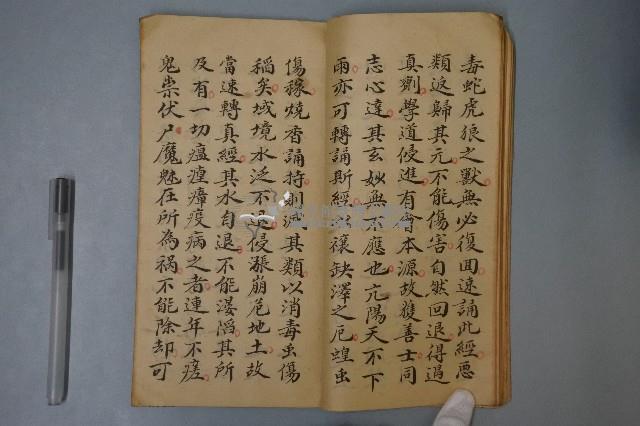 毒蛇虎狼之獸無必復囬速誦此經惡
類返歸其元不能傷害自然回退得過
真劑學道侵進有會本源故獲善士同
志心達其玄妙無不應也亢陽天不下
雨亦可轉誦斯經以禳缺澤之厄蝗虫
傷稼燒香誦持則滅其類以消毒虫傷
稲矣域境水泛不退侵漲崩危地土故
當速轉真經其水自退不能渰陷其所
及有一切瘟瘴疫病之者連年不瘥
鬼祟伏尸魔魅在所為祸不能除却可